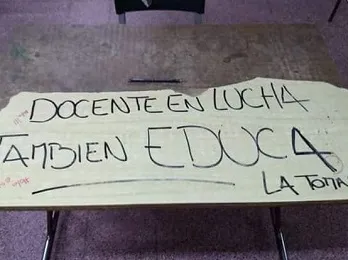 DOCENTE EN LUCHA
TAMBIEN EDUCA
LA TOMA